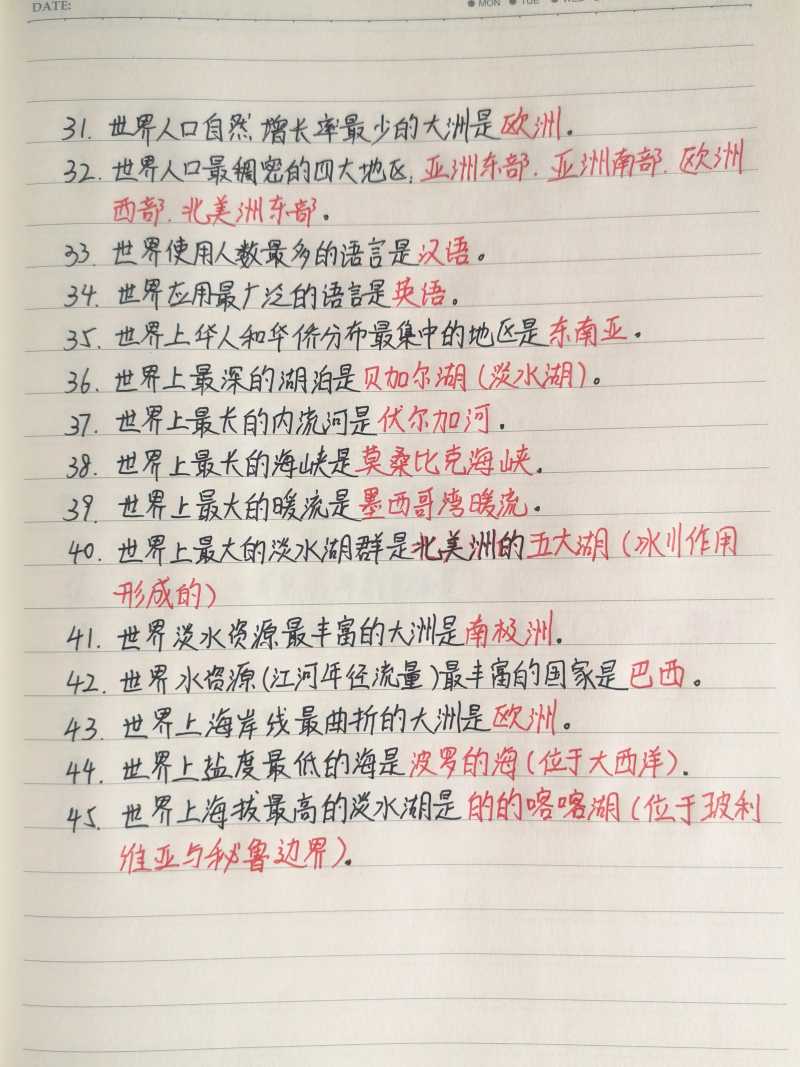 DATE:
MON TUE
31. 世界人口自然增长率最少的大洲是欧洲。
32. 世界人口最稠密的四大地区: 亚洲东部. 亚洲南部. 欧洲
西部. 北美洲东部。
33. 世界使用人数最多的语言是汉语。
34. 世界应用最广泛的语言是英语。
35. 世界上华人和华侨分布最集中的地区是东南亚.
36. 世界上最深的湖泊是贝加尔湖(淡水湖)。
37. 世界上最长的内流河是伏尔加河.
38. 世界上最长的海峡是莫桑比克海峡.
39. 世界上最大的暖流是墨西哥湾暖流.
40. 世界上最大的淡水湖群是北美洲的五大湖(冰川作用
形成的)
41. 世界淡水资源最丰富的大洲是南极洲.
42. 世界水资源(江河年径流量)最丰富的国家是巴西。
43. 世界上海岸线最曲折的大洲是欧洲。
44. 世界上盐度最低的海是波罗的海(位于大西洋).
45. 世界上海拔最高的淡水湖是的的喀喀湖(位于玻利
维亚与秘鲁边界).